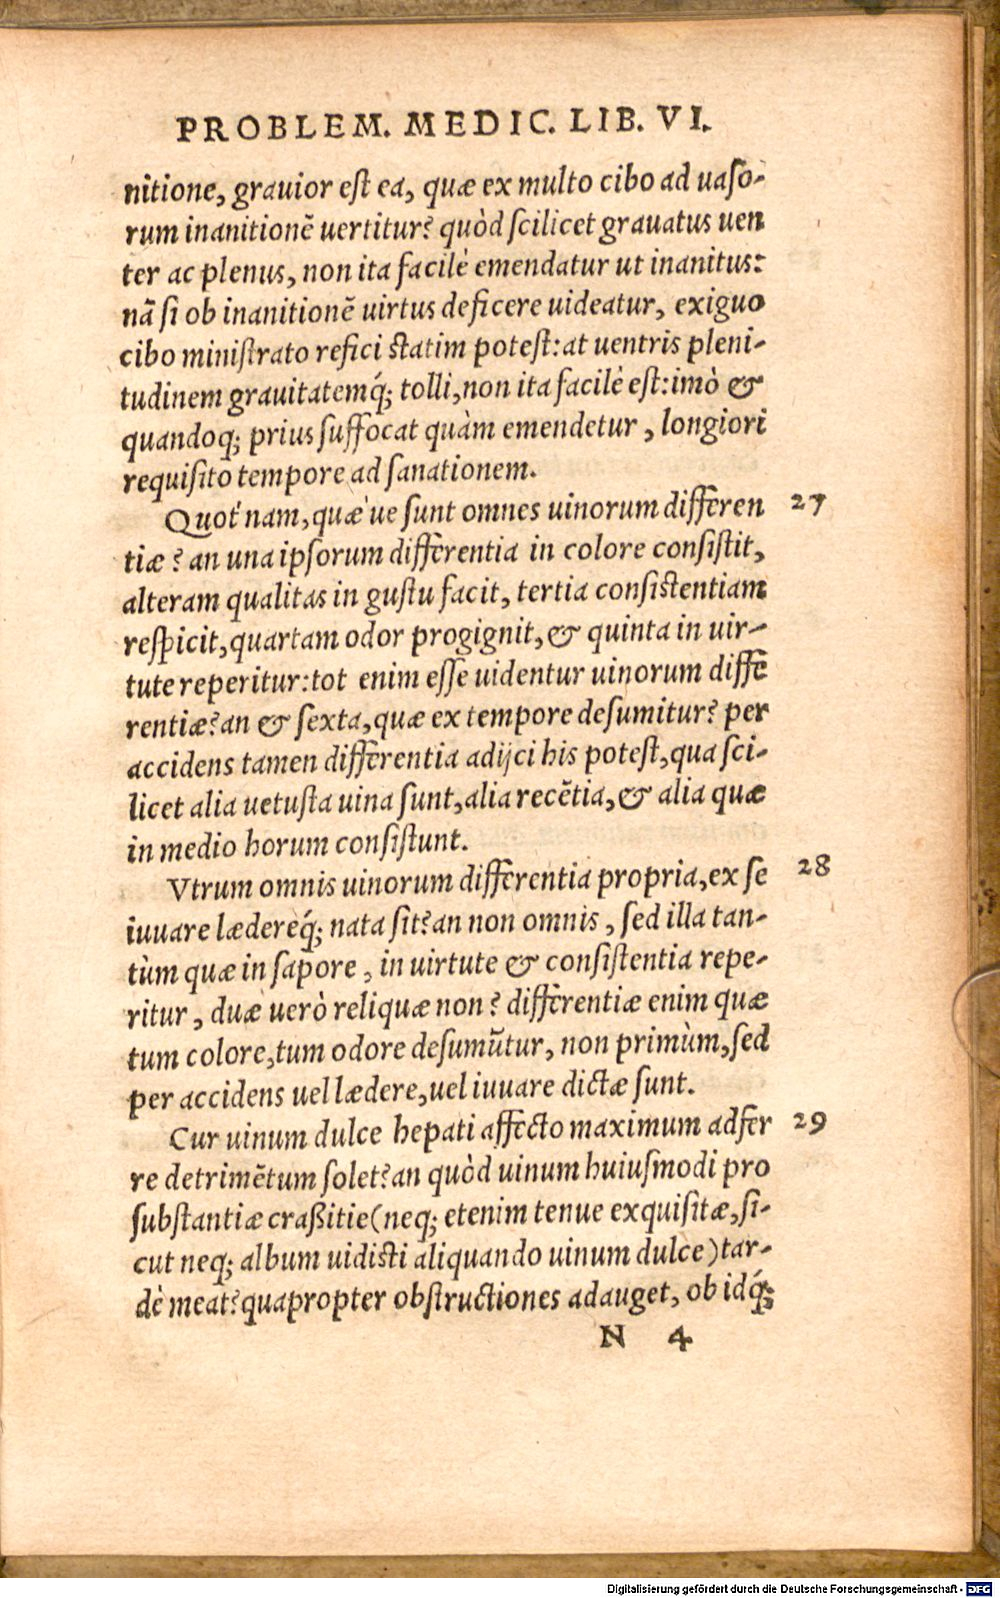 PROBLEM. MEDIC. LIB. VI.
nitione, grauior est ea, quæ ex multo cibo ad uaso-
rum inanitionē uertitur? quòd scilicet grauatus uen
ter ac plenus, non ita facilè emendatur ut inanitus:
nā si ob inanitionē uirtus deficere uideatur, exiguo
cibo ministrato refici statim potest: at uentris pleni-
tudinem grauitatemq́; tolli, non ita facilè est: imò &
quandoq; prius suffocat quàm emendetur, longiori
requisito tempore ad sanationem.
Quot nam, quæ ue sunt omnes uinorum differen 27
tiæ? an una ipsorum differentia in colore consistit,
alteram qualitas in gustu facit, tertia consistentiam
respicit, quartam odor progignit, & quinta in uir-
tute reperitur: tot enim esse uidentur uinorum diffē
rentiæ? an & sexta, quæ ex tempore desumitur? per
accidens tamen differentia adijci his potest, qua sci-
licet alia uetusta uina sunt, alia recētia, & alia quæ
in medio horum consistunt.
Vtrum omnis uinorum differentia propria, ex se 28
iuuare lædereq́; nata sit? an non omnis, sed illa tan-
tùm quæ in sapore, in uirtute & consistentia repe-
ritur, duæ uerò reliquæ non? differentiæ enim quæ
tum colore, tum odore desumūtur, non primùm, sed
per accidens uel lædere, uel iuuare dictæ sunt.
Cur uinum dulce hepati affecto maximum adfer 29
re detrimētum solet? an quòd uinum huiusmodi pro
substantiæ craßitie (neq; etenim tenue exquisitæ, si-
cut neq; album uidisti aliquando uinum dulce) tar-
dè meat? quapropter obstructiones adauget, ob idq́;
N 4
Digitalisierung gefördert durch die Deutsche Forschungsgemeinschaft - DFG